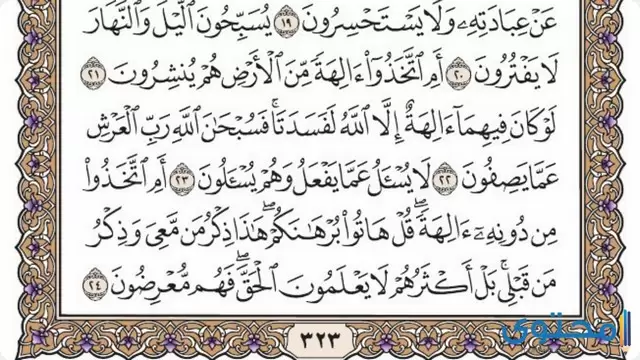 عَنْ عِبَادَتِهِۦ وَلَا يَسْتَحْسِرُونَ ١٩ يُسَبِّحُونَ ٱلَّيْلَ وَٱلنَّهَارَ
لَا يَفْتُرُونَ ٢٠ أَمِ ٱتَّخَذُوٓا۟ ءَالِهَةً مِّنَ ٱلْأَرْضِ هُمْ يُنشِرُونَ ٢١
لَوْ كَانَ فِيهِمَآ ءَالِهَةٌ إِلَّا ٱللَّهُ لَفَسَدَتَا ۚ فَسُبْحَٰنَ ٱللَّهِ رَبِّ ٱلْعَرْشِ
عَمَّا يَصِفُونَ ٢٢ لَا يُسْـَٔلُ عَمَّا يَفْعَلُ وَهُمْ يُسْـَٔلُونَ ٢٣ أَمِ ٱتَّخَذُوا۟
مِن دُونِهِۦٓ ءَالِهَةً ۖ قُلْ هَاتُوا۟ بُرْهَٰنَكُمْ ۖ هَٰذَا ذِكْرُ مَن مَّعِىَ وَذِكْرُ
مَن قَبْلِى ۗ بَلْ أَكْثَرُهُمْ لَا يَعْلَمُونَ ٱلْحَقَّ ۖ فَهُم مُّعْرِضُونَ ٢٤
٣٢٣
المحتوى